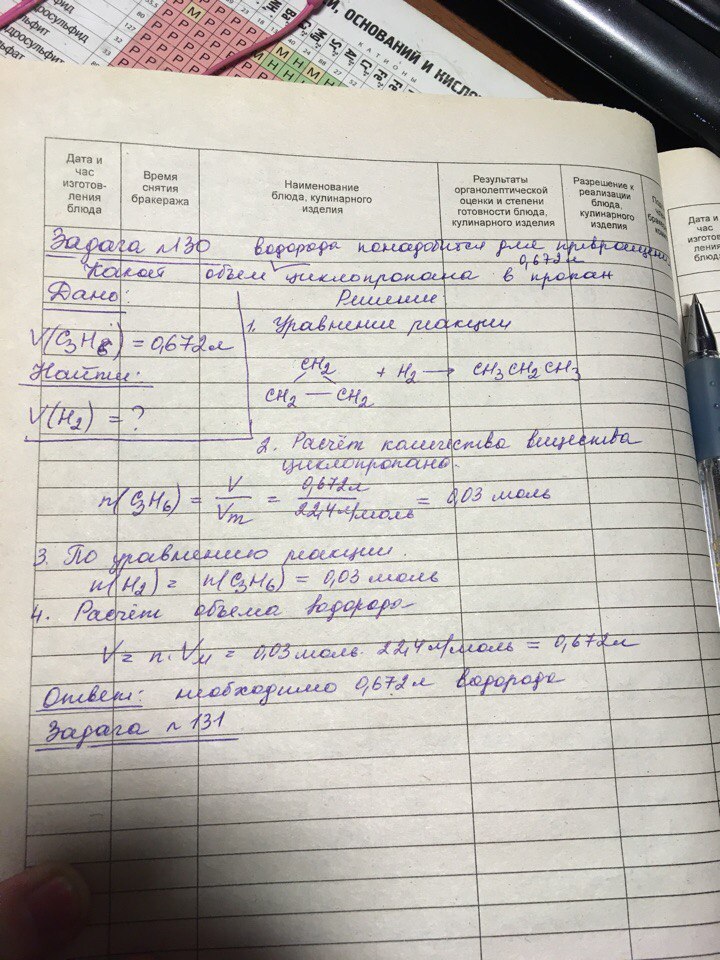 ОСНОВАНИЙ И КИСЛО
КАТИОНЫ
Дата и час изготов-ления блюда
Время снятия бракеража
Наименование блюда, кулинарного изделия
Результаты органолептической оценки и степени готовности блюда, кулинарного изделия
Разрешение к реализации блюда, кулинарного изделия
Дата и
час
изготов-
ления
блюд
Задача №130 водорода понадобится для превращения
Какой объем циклопропана 0,672л в пропан
Дано: Решение
V(C3H6) = 0,672л
1. Уравнение реакции
Найти:
CH2
CH2 — CH2 + H2 → CH3CH2CH3
V(H2) = ?
2. Расчёт количества вещества
циклопропана.
n(C3H6) = V/Vm = 0,672л/22,4л/моль = 0,03 моль
3. По уравнению реакции.
n(H2) = n(C3H6) = 0,03 моль
4. Расчёт объема водорода
V = n · Vм = 0,03 моль · 22,4л/моль = 0,672л
Ответ: необходимо 0,672л водорода
Задача №131